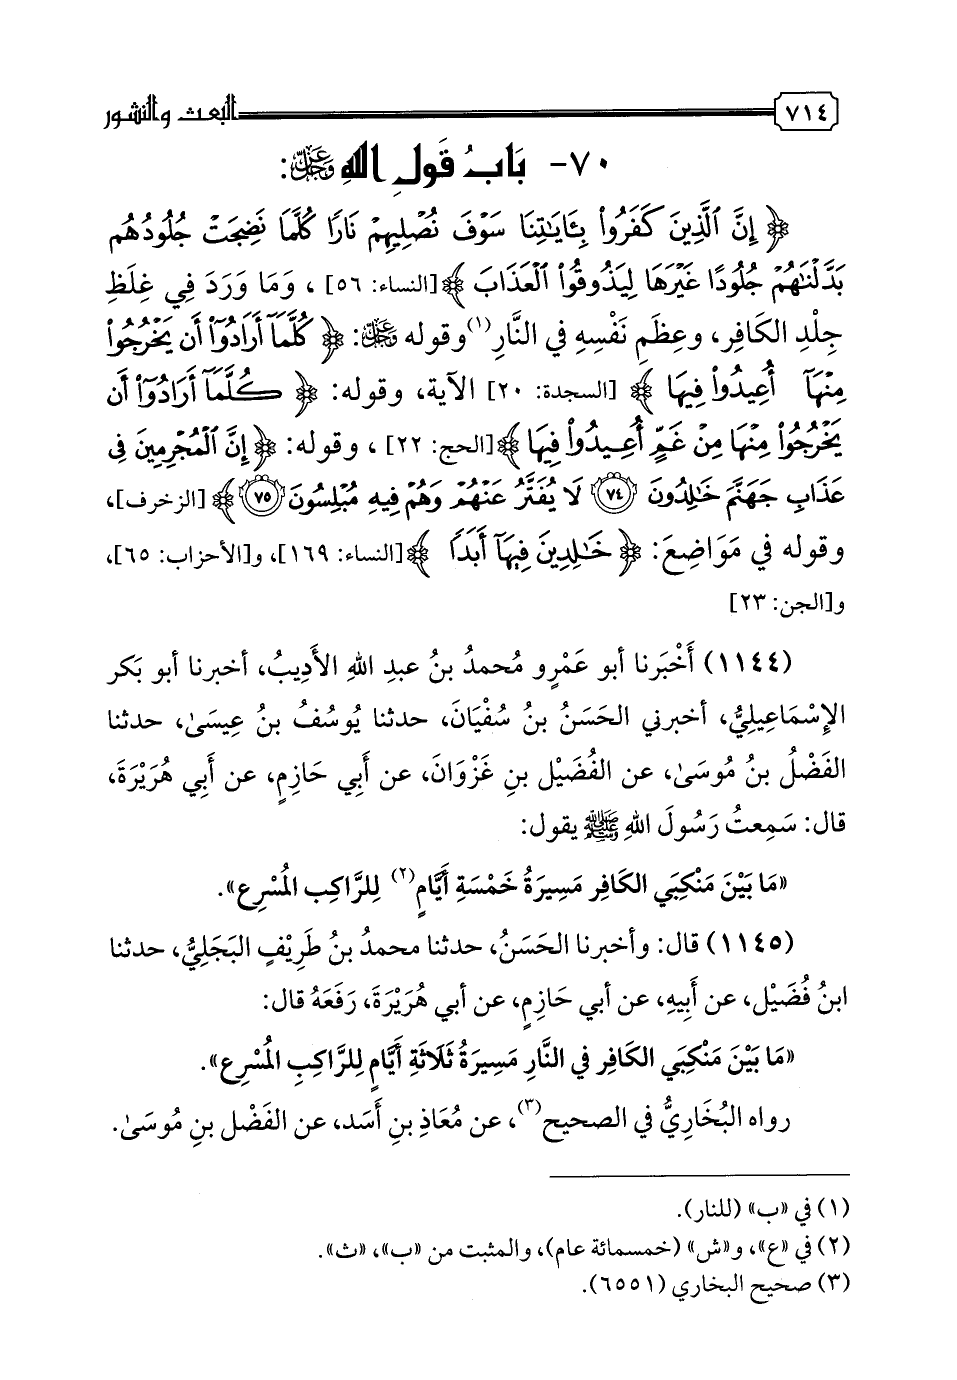 ٧١٤ البعث والنشور
٧٠- بَابُ قَولِ اللهِ عَزَّ وَجَلَّ:
﴿ إِنَّ ٱلَّذِينَ كَفَرُوا۟ بِـَٔايَـٰتِنَا سَوْفَ نُصْلِيهِمْ نَارًا كُلَّمَا نَضِجَتْ جُلُودُهُم
بَدَّلْنَـٰهُمْ جُلُودًا غَيْرَهَا لِيَذُوقُوا۟ ٱلْعَذَابَ ﴾ [النساء: ٥٦] ، وَمَا وَرَدَ فِي غِلَظِ
جِلْدِ الكَافِرِ، وعِظَمِ نَفْسِهِ في النَّارِ(١) وقوله عَزَّ وَجَلَّ: ﴿ كُلَّمَآ أَرَادُوٓا۟ أَن يَخْرُجُوا۟
مِنْهَآ أُعِيدُوا۟ فِيهَا ﴾ [السجدة: ٢٠] الآية، وقوله: ﴿ كُلَّمَآ أَرَادُوٓا۟ أَن
يَخْرُجُوا۟ مِنْهَا مِنْ غَمٍّ أُعِيدُوا۟ فِيهَا ﴾ [الحج: ٢٢] ، وقوله: ﴿ إِنَّ ٱلْمُجْرِمِينَ فِى
عَذَابِ جَهَنَّمَ خَـٰلِدُونَ ٧٤ لَا يُفَتَّرُ عَنْهُمْ وَهُمْ فِيهِ مُبْلِسُونَ ٧٥ ﴾ [الزخرف]،
وقوله في مَوَاضِعَ: ﴿ خَـٰلِدِينَ فِيهَآ أَبَدًا ﴾ [النساء: ١٦٩]، و[الأحزاب: ٦٥]،
و[الجن: ٢٣]
(١١٤٤) أَخْبَرنا أبو عَمْرٍو مُحمدُ بنُ عبدِ اللهِ الأَدِيبُ، أخبرنا أبو بَكر
الإِسْمَاعِيلِيُّ، أخبرني الحَسَنُ بنُ سُفْيَانَ، حدثنا يُوسُفُ بنُ عِيسَىٰ، حدثنا
الفَضْلُ بنُ مُوسَىٰ، عن الفُضَيْلِ بنِ غَزْوَانَ، عن أَبِي حَازِمٍ، عن أَبِي هُرَيْرَةَ،
قال: سَمِعتُ رَسُولَ اللهِ ﷺ يقول:
«مَا بَيْنَ مَنْكِبَي الكَافِرِ مَسِيرَةُ خَمْسَةِ أَيَّامٍ(٢) لِلرَّاكِبِ المُسْرِعِ».
(١١٤٥) قال: وأخبرنا الحَسَنُ، حدثنا محمدُ بنُ طَرِيْفٍ البَجَلِيُّ، حدثنا
ابنُ فُضَيْلٍ، عن أَبِيهِ، عن أبي حَازِمٍ، عن أبي هُرَيْرَةَ، رَفَعَهُ قال:
«مَا بَيْنَ مَنْكِبَي الكَافِرِ في النَّارِ مَسِيرَةُ ثَلَاثَةِ أَيَّامٍ لِلرَّاكِبِ المُسْرِعِ».
رواه البُخَارِيُّ في الصحيح(٣)، عن مُعَاذِ بنِ أَسَد، عن الفَضْلِ بنِ مُوسَىٰ.
(١) في «ب» (للنار).
(٢) في «ع»، و«ش» (خمسمائة عام)، والمثبت من «ب»، «ث».
(٣) صحيح البخاري (٦٥٥١).